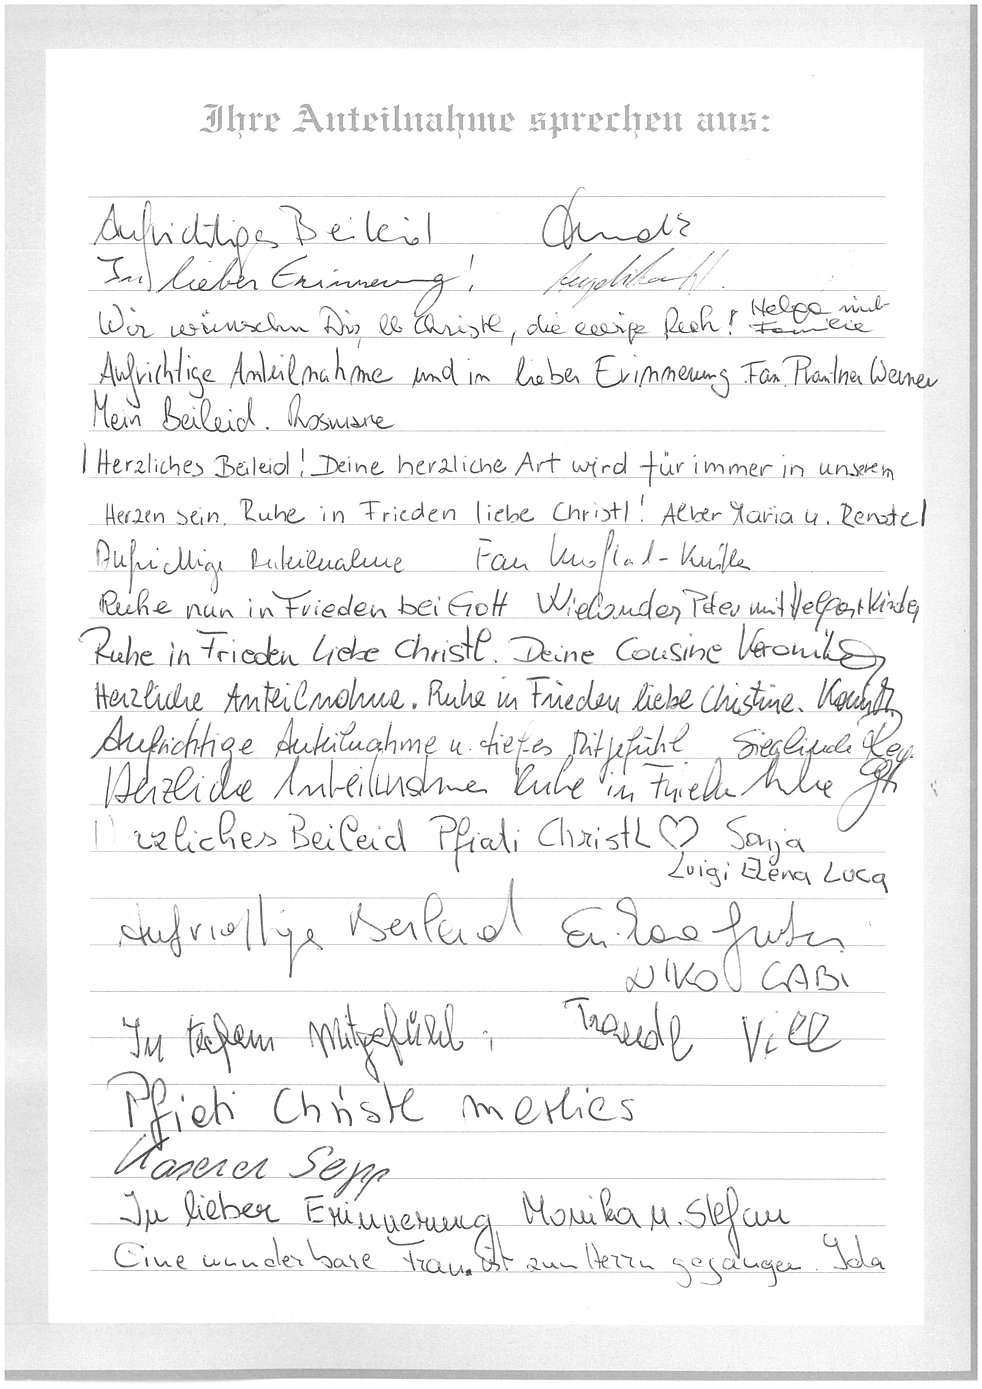 Ihre Anteilnahme sprechen aus:
Aufrichtiges Beileid
In lieber Erinnerung!
Wir wünschen Dir, lb Christl, die ewige Ruh! Helga mit
Familie
Aufrichtige Anteilnahme und in lieber Erinnerung. Fam. Plantner Werner
Mein Beileid.
Herzliches Beileid! Deine herzliche Art wird für immer in unserem
Herzen sein. Ruhe in Frieden liebe Christl! Alber Maria u. Renate
Aufrichtige Anteilnahme Fam
Ruhe nun in Frieden bei Gott Wielander Peter mit Helga + Kinder
Ruhe in Frieden liebe Christl. Deine Cousine Veronika
Herzliche Anteilnahme. Ruhe in Frieden liebe Christine.
Aufrichtige Anteilnahme u. tiefes Mitgefühl Sieglinde
Herzliche Anteilnahme Ruhe in Frieden
Herzliches Beileid Pfiati Christl ♡ Sonja
Luigi Elena Luca
Aufrichtige Beileid
NIKO GABI
In tiefem Mitgefühl; Traudl Vill
Pfiati Christl Merlies
Kaserer Sepp
In lieber Erinnerung Monika u. Stefan
Eine wunderbare Frau ist zum Herrn gegangen. Ida